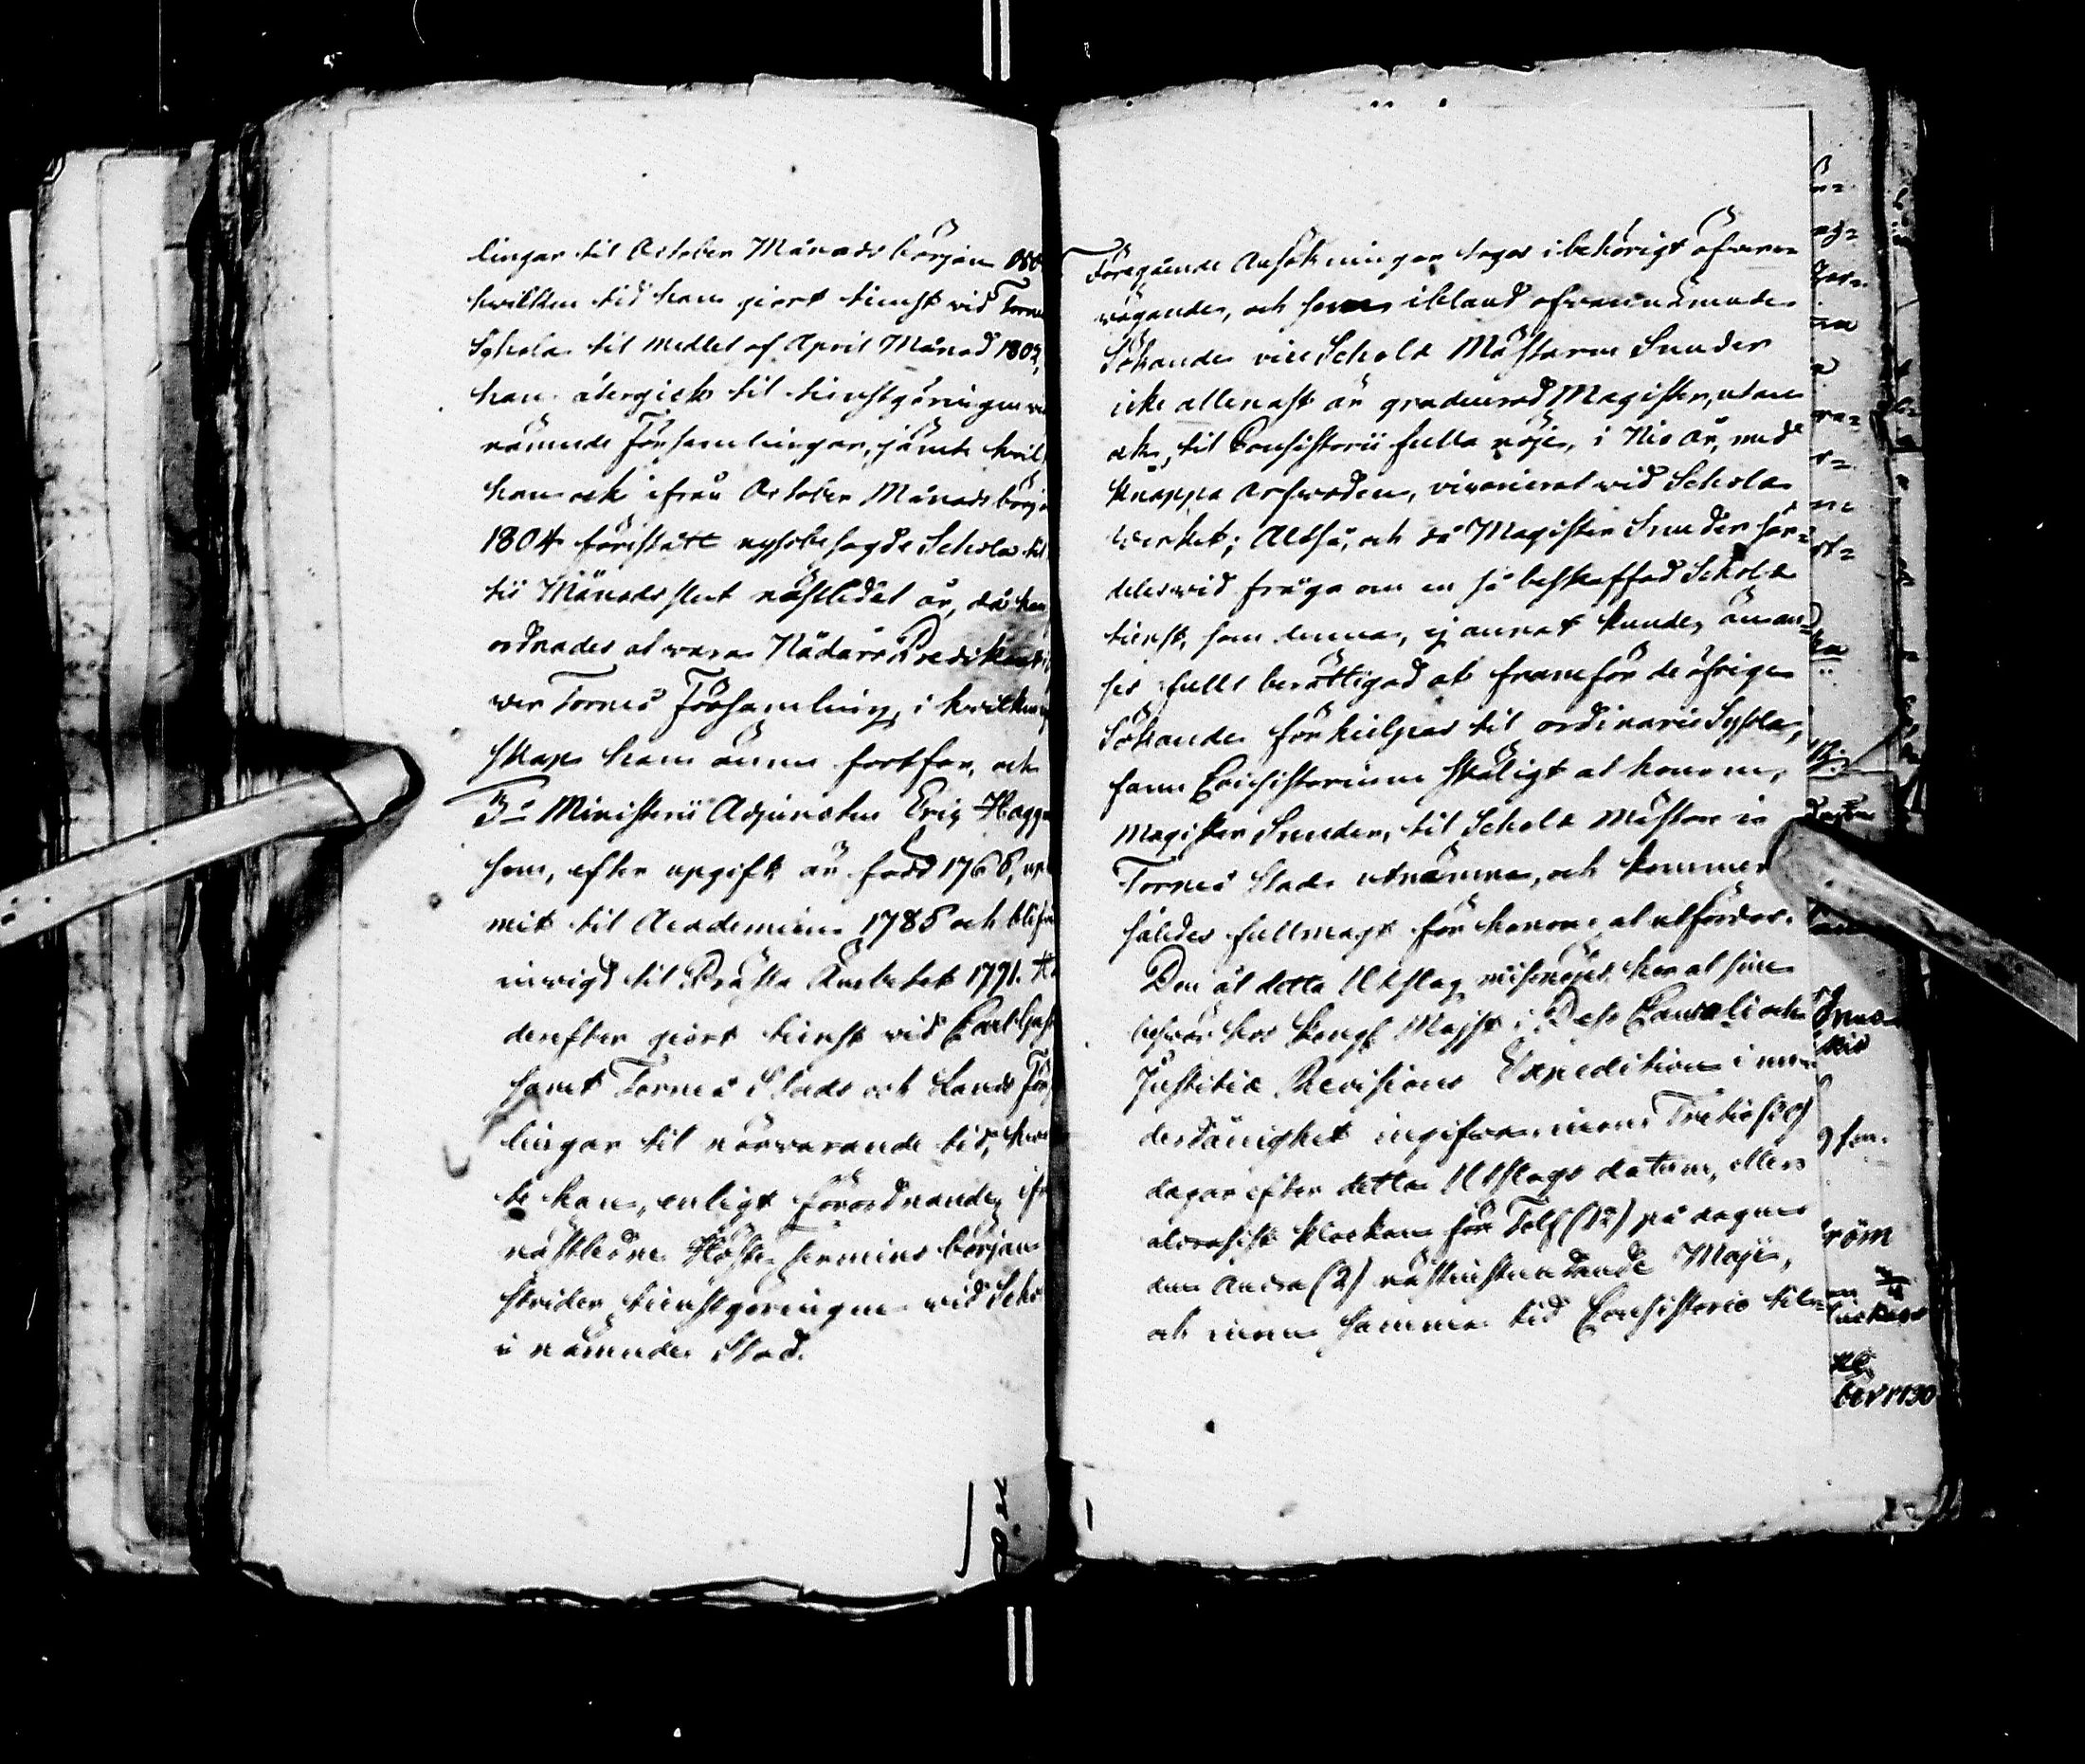 lingar til October Månads början 180
hwilken tid han giort tienst wid Torne
Schola til medlet af April Månad 1802,
han återgick til tienstgöringen wi
nämnde Församlingar, jämte hwil
han ock ifrån October Månads börja
1804 förestått nyssbesagde Schola til
tii Månads slut nästledit år, då han
ordnades at wara Nådårs Predikant i
der Torneå Församling, i hwilken
skap han ännu fortfar, och
3:o Ministerii Adjuncten Eric Hegge
som, efter upgift, är född 1768, up
mit til Academien 1785 och blifwi
inwigd til Prästa Ämbetet 1791. Ha
derefter giort tienst wid Carl Gust
samt Torneå Stads och Lands För
lingar til närwarande tid, hwa
te han, enligt förordnande, ifr
nästledne Höste termins början
strider tienstgöringen wid Scho
i nämnde Stad.
Föregående Ansökningar togos i behörigt öfwer=
wägande, och som ibland ofwannämnde
Sökande vice Schole Mästaren Snider
icke allenast är graduerad Magister, utan
ock, til Consistorii fulla nöje, i Nio år, med
knappa Arfwoden, vicarierat wid Schola
Werket; Altså, och då Magister Snider sär=
deles wid fråga om en så beskaffad Schole
tienst, som denna, ej annat kunde, än an=
ses fullt berättigad at framför de öfrige
Sökande förhielpas til ordinarie Syssla,
fann Consistorium skäligt at honom,
Magister Snider, til Schole Mästare i
Torneå Stad utnämna, och kommer
således fullmagt för honom at utfärdas.
Den åt detta Utslag missnöjes har at sine
beswär hos Kongl Majst i Dess Cancelli och
Justitiæ Revisions Expedition i un=
derdånighet ingifwa inom Tretio (30)
dagar efter detta Utslags datum, eller
aldrasist klockan för Tolf (12) på dagen
den Andra (2) nästinstundande Maji,
och inom samma tid Consistorio til=
röm